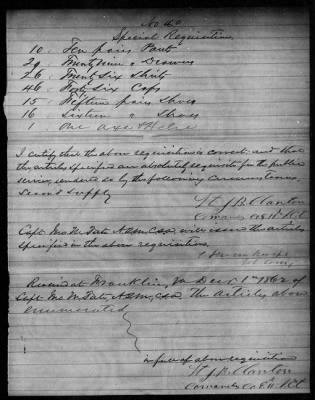 No 40
Special Requisition
10 Ten pairs Pants
29 Twenty nine " Drawers
26 Twenty Six Shirts
46 Forty Six Caps
15 Fifteen pairs Shoes
16 Sixteen " Shoes
1 One Axe & Helve
I certify that the above requisition is correct and that
the articles specified are absolutely requisite for the public
service, rendered so by the following circumstances
Scant Supply
J B Claxton
Comandg Co
Capt Jno W. Tate AQM, CSA, will issue the articles
specified in the above requisition
Comg
Received at Franklin, Va Decr 1st 1862 of
Capt Jno W. Tate, AQM, CSA The Articles above
enumerated
in full of above requisition
J B Claxton
Comandg Co